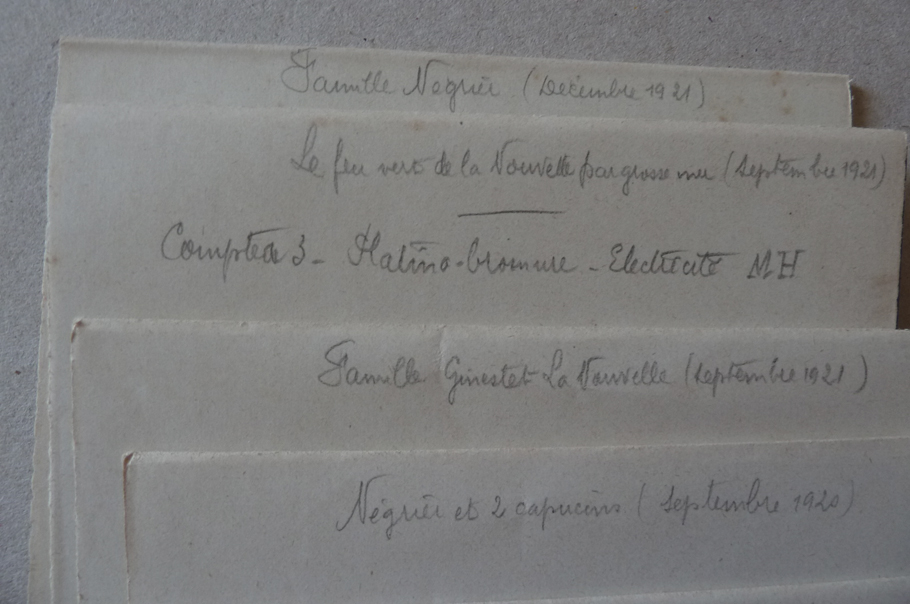 Famille Negrier (Décembre 1921)
Le feu vert de la Nouvelle par grosse mer (Septembre 1921)
Compteur 3 - Platino-bromure - Electricité MH
Famille Ginestet La Nouvelle (Septembre 1921)
Négrier et 2 capucins (Septembre 1920)